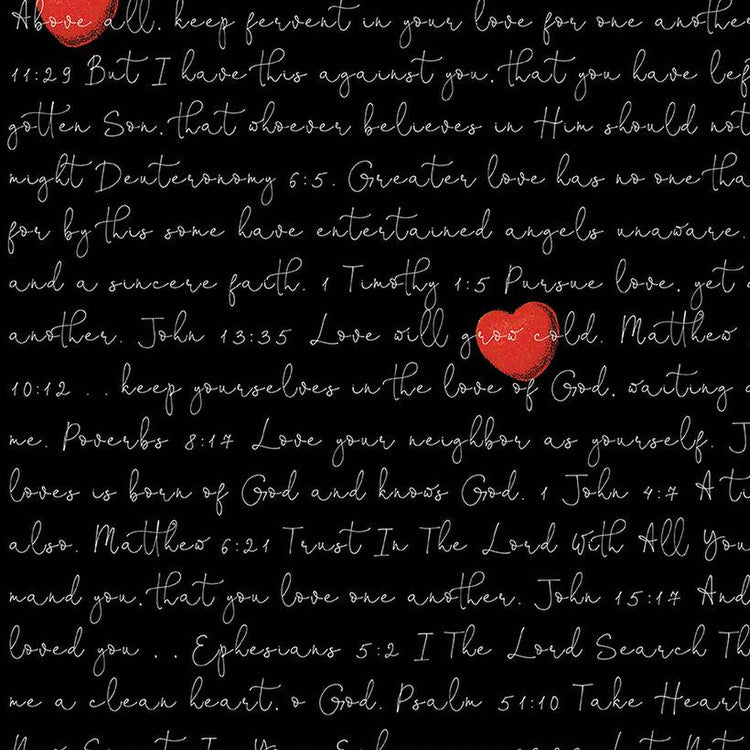 Above all, keep fervent in your love for one another
11:29 But I have this against you, that you have lef
gotten Son, that whoever believes in Him should not
might Deuteronomy 6:5. Greater love has no one tha
for by this some have entertained angels unaware.
and a sincere faith. 1 Timothy 1:5 Pursue love, yet
another. John 13:35 Love will grow cold. Matthew
10:12 . . keep yourselves in the love of God, waiting
me. Poverbs 8:17 Love your neighbor as yourself. J
loves is born of God and knows God. 1 John 4:7 A ti
also. Matthew 6:21 Trust In The Lord With All You
mand you, that you love one another. John 15:17 And
loved you . . Ephesians 5:2 I The Lord Search Th
me a clean heart, o God. Psalm 51:10 Take Heart